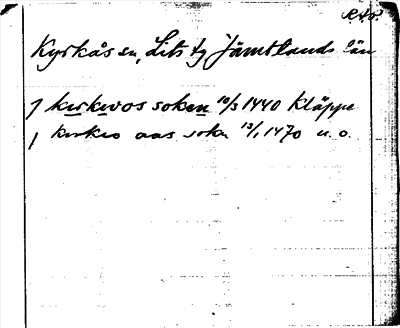 RAp.
Kyrkås sn, Lits tg Jämtlands län
J kirkivos soken 10/3 1440 Kläppe
J kirkio aas sokn 13/1 1470 u.o.